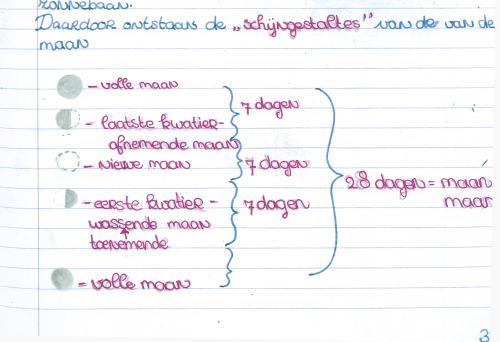 zonnebaan.
Daardoor ontstaan de „schijngestaltes" van de van de
maan
- volle maan
7 dagen
- laatste kwatier -
afnemende maan
- nieuwe maan
7 dagen
28 dagen = maan
maar
- eerste kwatier -
7 dagen
wassende maan
toenemende
= volle maan
3